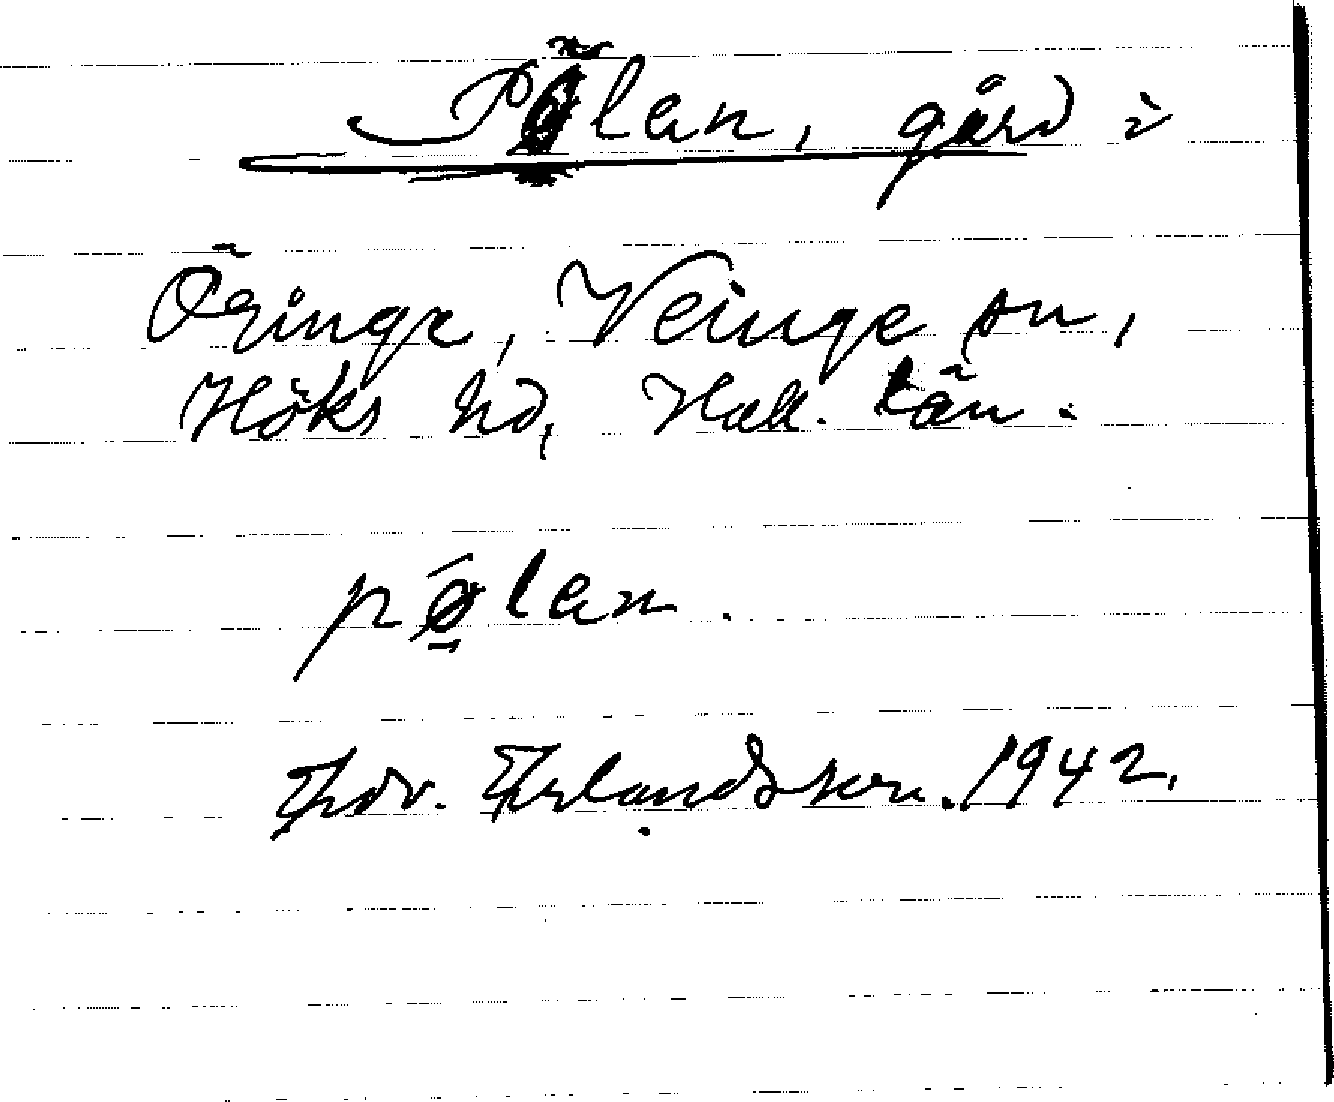 Pölan, gård i
Öringe, Veinge sn,
Höks hd, Hall. län.
pølan.
Edv. Erlandsson. 1942.